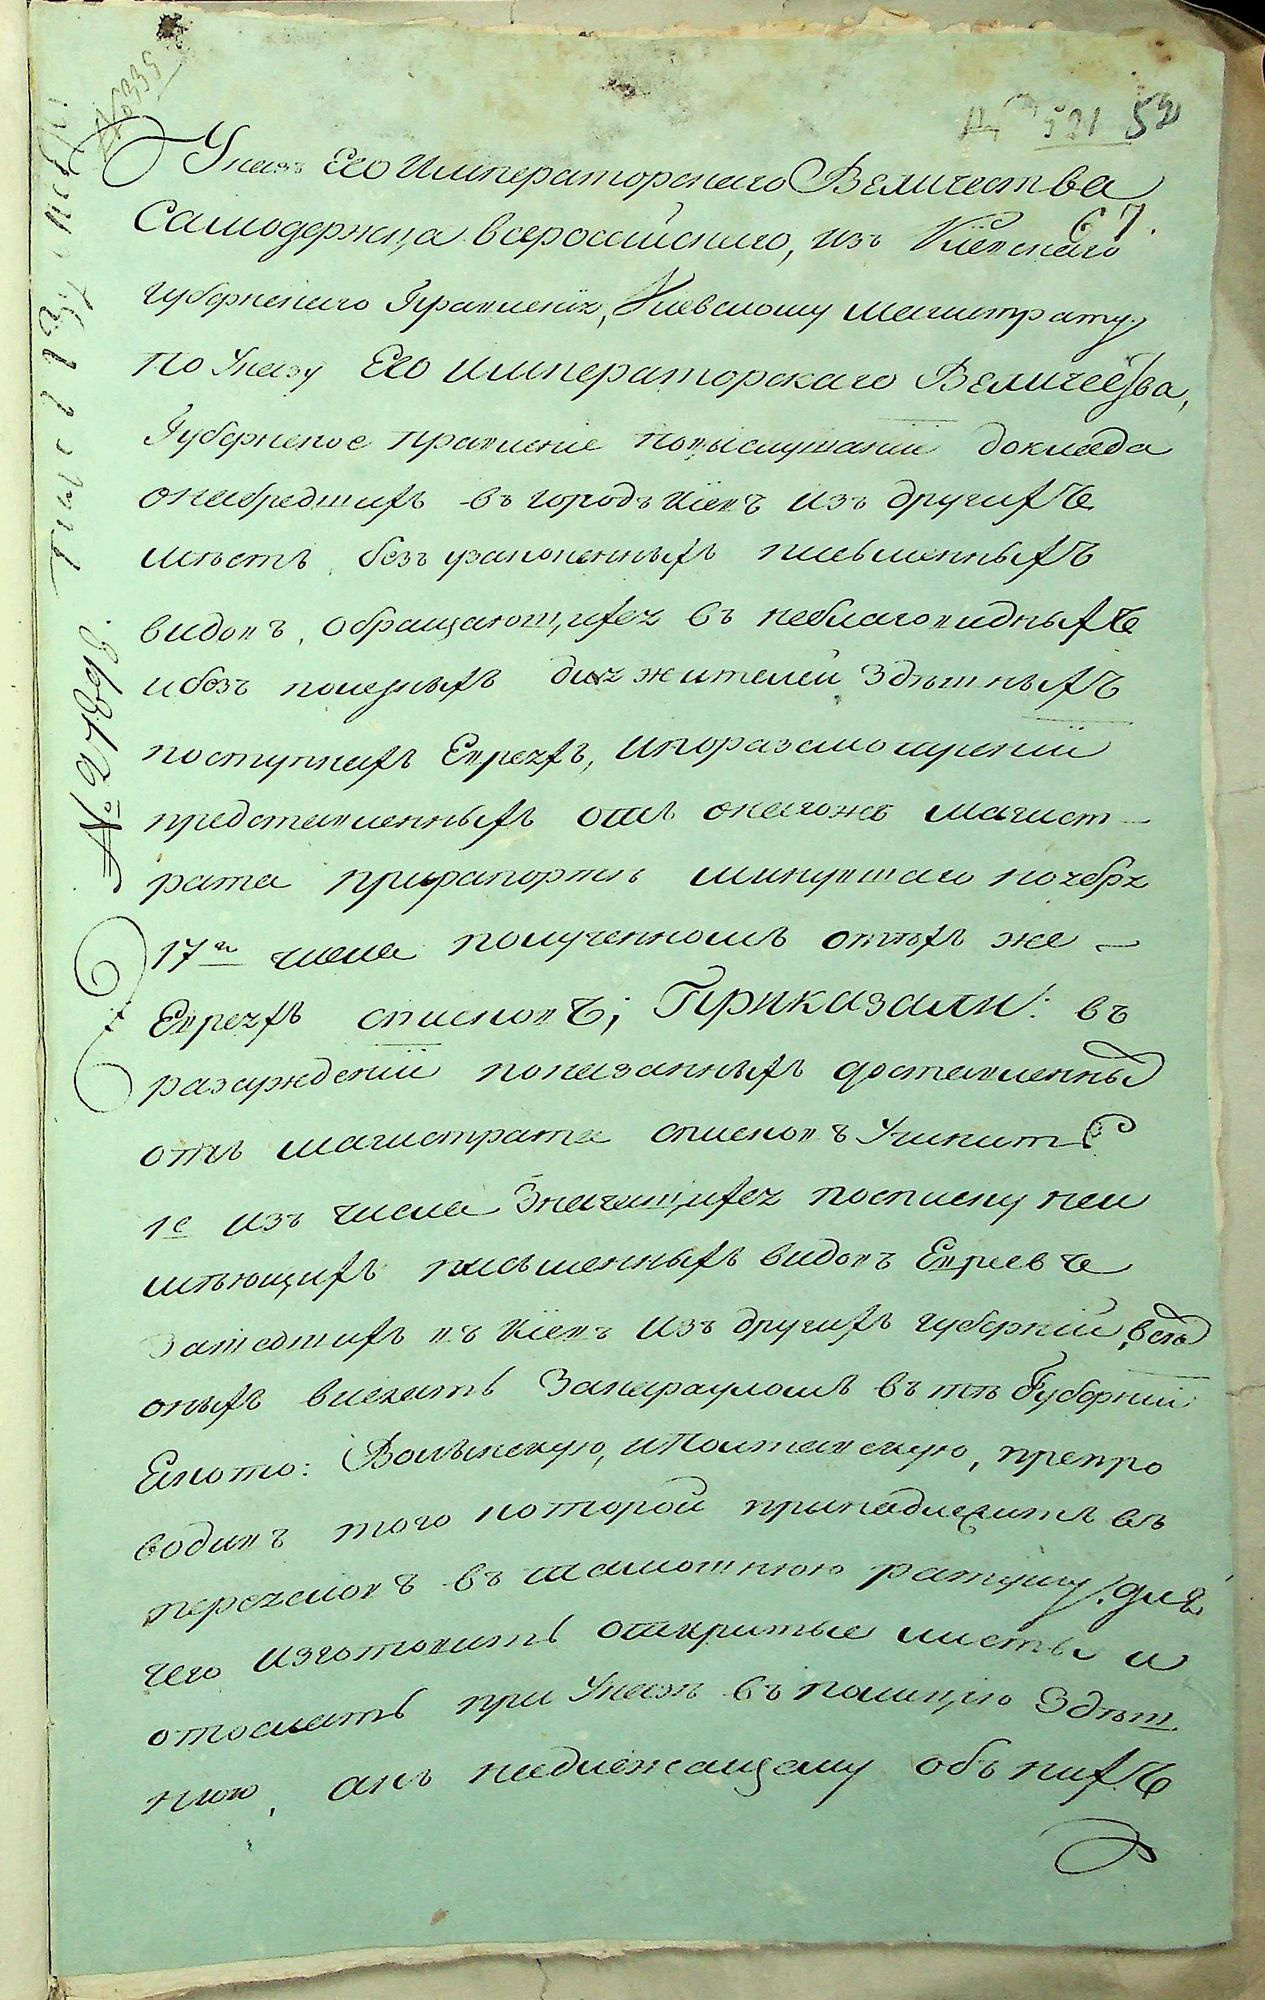 № 335
№ 521 52
67.
Указъ Его Императорскаго Величества
Самодержца всероссійскаго, изъ Кіевскаго
губернскаго Правленія, Кіевскому магистрату
По Указу Его Императорскаго Величества,
Губернское правленіе повыслушаніи доклада
о набредшихъ въ городъ Кіевъ изъ другихъ
мѣстъ безъ узаконенныхъ письменныхъ
видовъ, обращающихся въ неблаговидныхъ
и безъ полезныхъ для жителей здѣшныхъ
поступкахъ Евреяхъ, и по разсмотреніи
представленныхъ отъ онагожъ магист-
рата при рапортѣ минувшаго ноября
17го числа полученномъ о тѣхъ же
Евреяхъ списковъ; Приказали: въ
разсужденіи показанныхъ доставленны
отъ магистрата списковъ Учинить
1е изъ числа Значащихся по списку неи
мѣющихъ письменныхъ видовъ Евреевъ
Зашедшихъ въ Кіевъ изъ другихъ губерній,
оныхъ выслать За карауломъ въ тѣ Губерніи
Какото: Волынскую, и Полтавскую, препро
водивъ того которой принадлежитъ въ
въ тамошнюю ратушу, для
чего изготовить открытые листы и
отослать при Указѣ въ полицію Здѣш
нюю, а къ надлежащему объ нихъ
№ 21898.